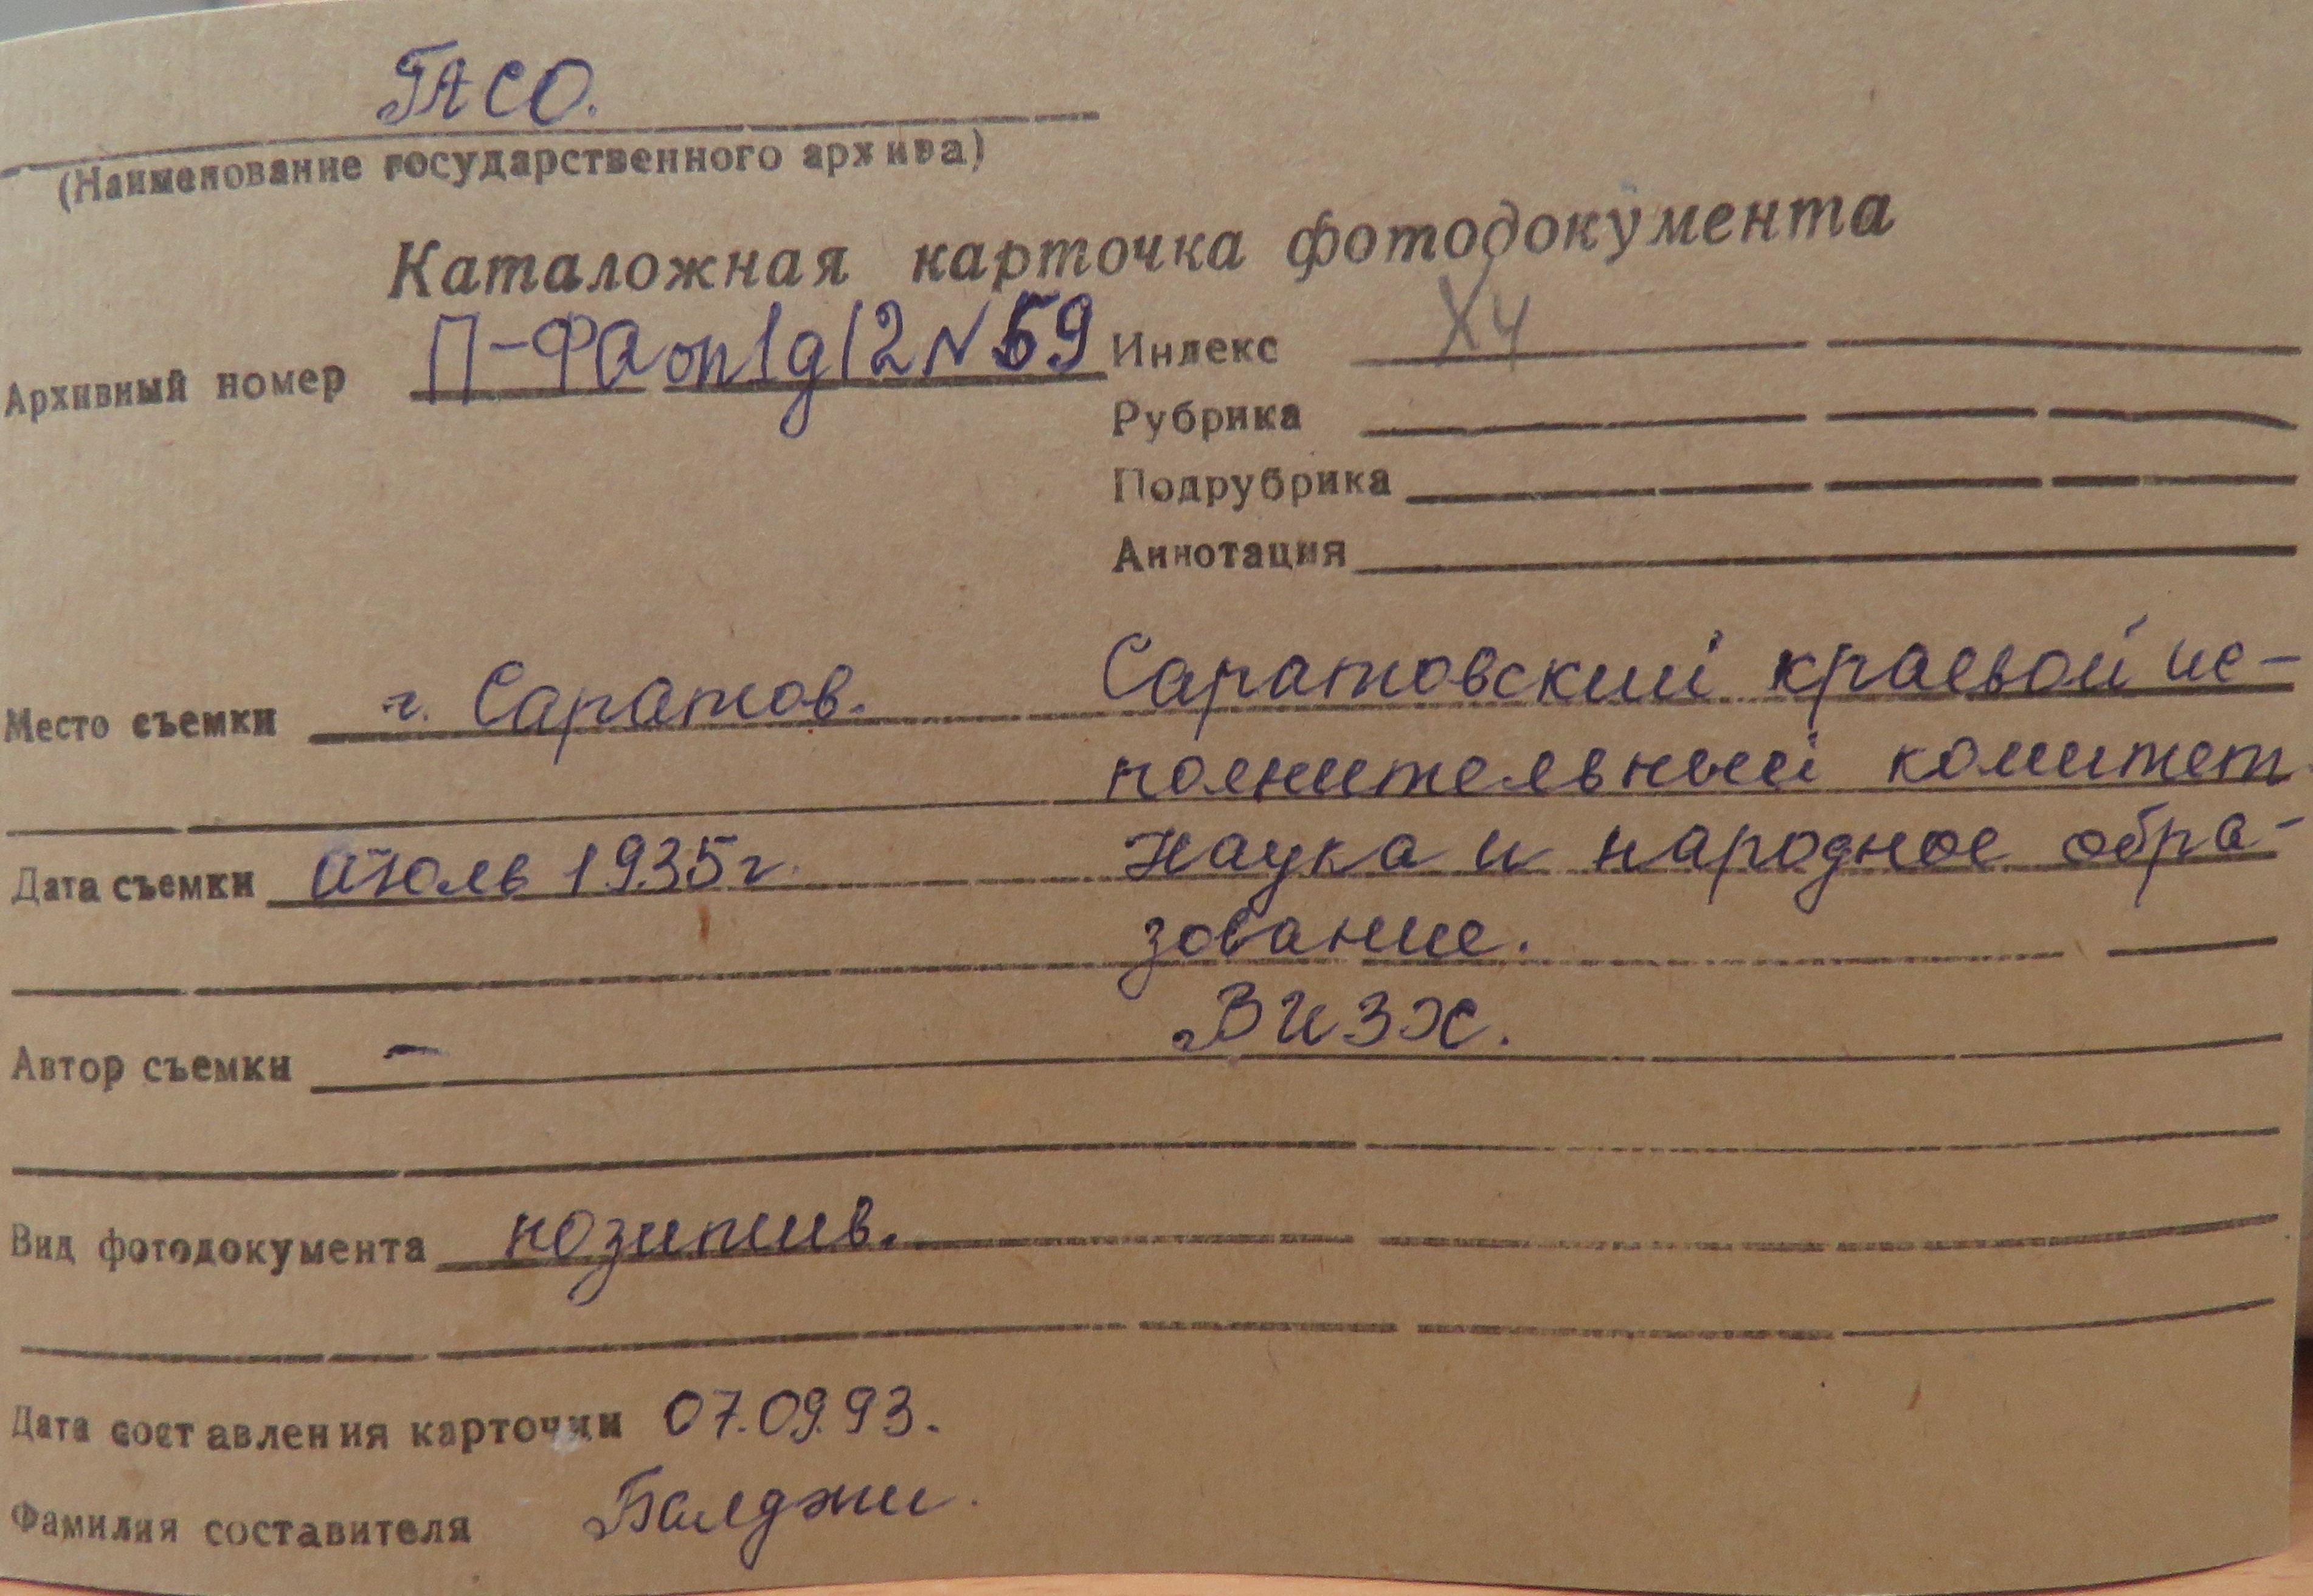 ГАСО.
(Наименование государственного архива)
Каталожная карточка фотодокумента
Архивный номер П-ФА оп1д12 N 59 Индекс Х4
Рубрика
Подрубрика
Аннотация
Место съемки г. Саратов. Саратовский краевой ис-
полнительный комитет.
Дата съемки июль 1935г. Наука и народное обра-
зование.
Автор съемки – ВИЗХ.
Вид фотодокумента позитив.
Дата составления карточки 07.09.93.
Фамилия составителя Балджи.